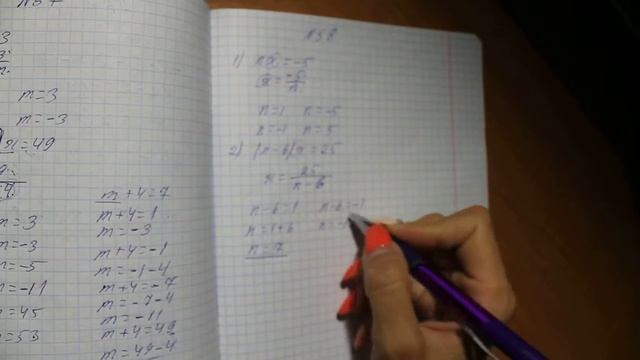 m=3
m=-3
x=49
m=3
m=-3
=-5
=-11
=45
=53
m+4=7
m+4=1
m=-3
m+4=-1
m=-1-4
m+4=-7
m=-7-4
m=-11
m+4=49
m=49-4
N58
1) nx=-5
x=-5/n
n=1 n=-5
n=-1 n=5
2) (n-6)x=25
x=25/n-6
n-6=1 n-6=-1
n=1+6 n=
n=7